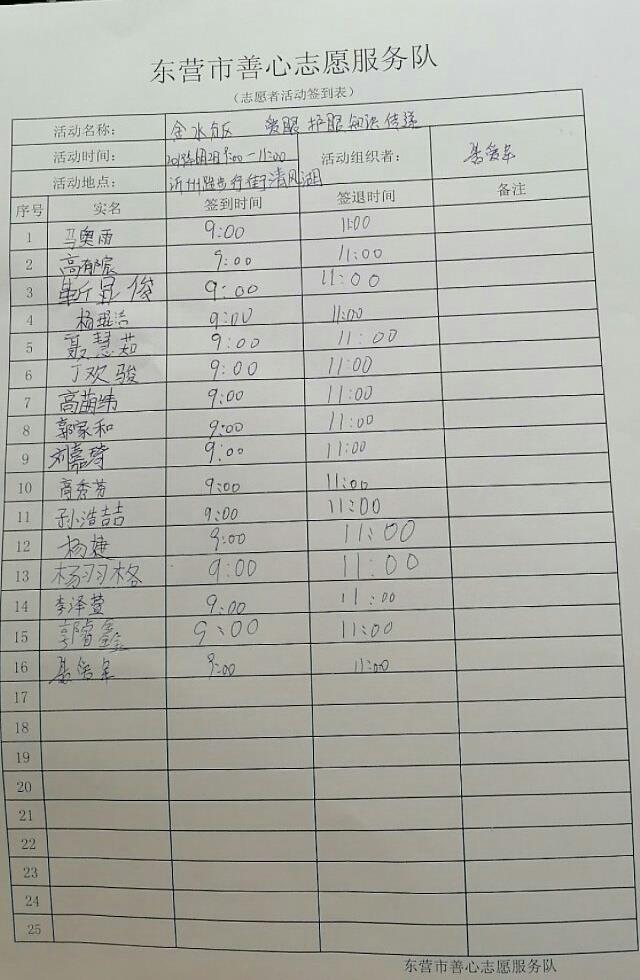 东营市善心志愿服务队
（志愿者活动签到表）
活动名称： 金水 爱眼护眼知识传递
活动时间： 9:00-11:00 活动组织者：
活动地点： 沂州路步行街清风湖
序号 实名 签到时间 签退时间 备注
1 马奥雨 9:00 11:00
2 高 9:00 11:00
3 靳显俊 9:00 11:00
4 杨 洁 9:00 11:00
5 聂慧茹 9:00 11:00
6 丁欢骏 9:00 11:00
7 高萌纬 9:00 11:00
8 郭家和 9:00 11:00
9 刘嘉琦 9:00 11:00
10 高秀芬 9:00 11:00
11 孙浩喆 9:00 11:00
12 杨婕 9:00 11:00
13 杨羽格 9:00 11:00
14 李泽萱 9:00 11:00
15 郭睿鑫 9:00 11:00
16 9:00 11:00
17
18
19
20
21
22
23
24
25
东营市善心志愿服务队